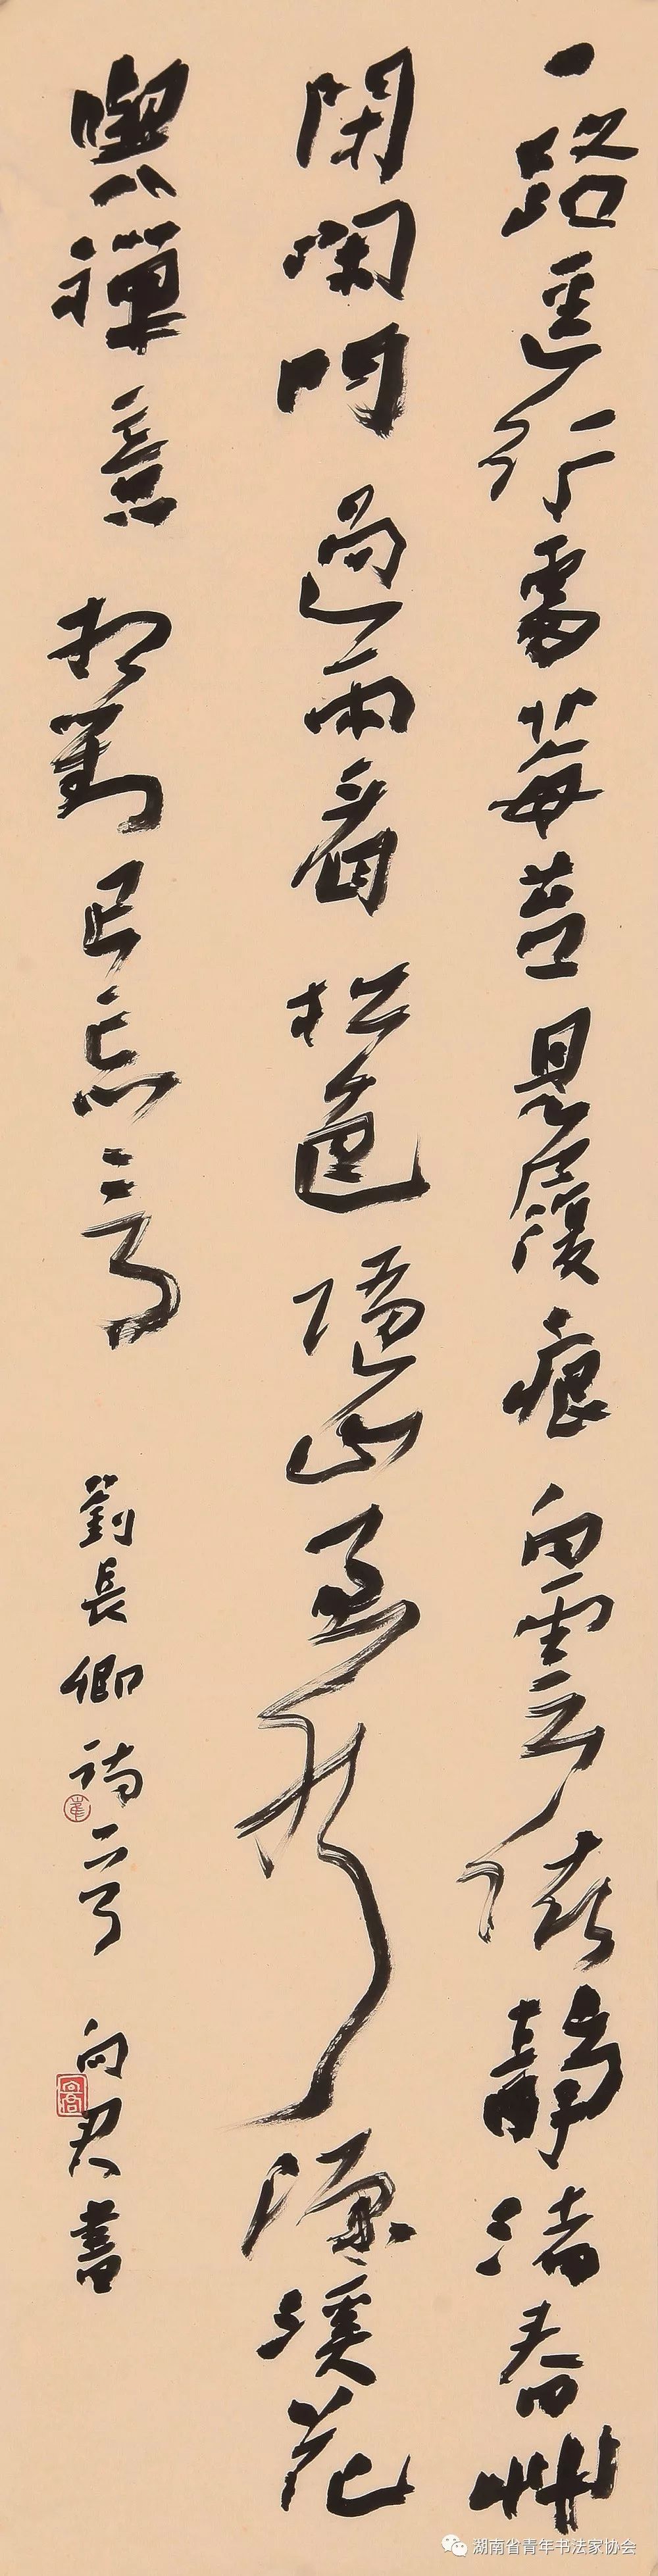 一路迳行處莓苔見履痕白雲依靜渚春草
閑閑門過雨看松色隨山至水源溪花
與禪意相對已忘言
劉長卿詩一首 向君書
湖南省青年书法家协会